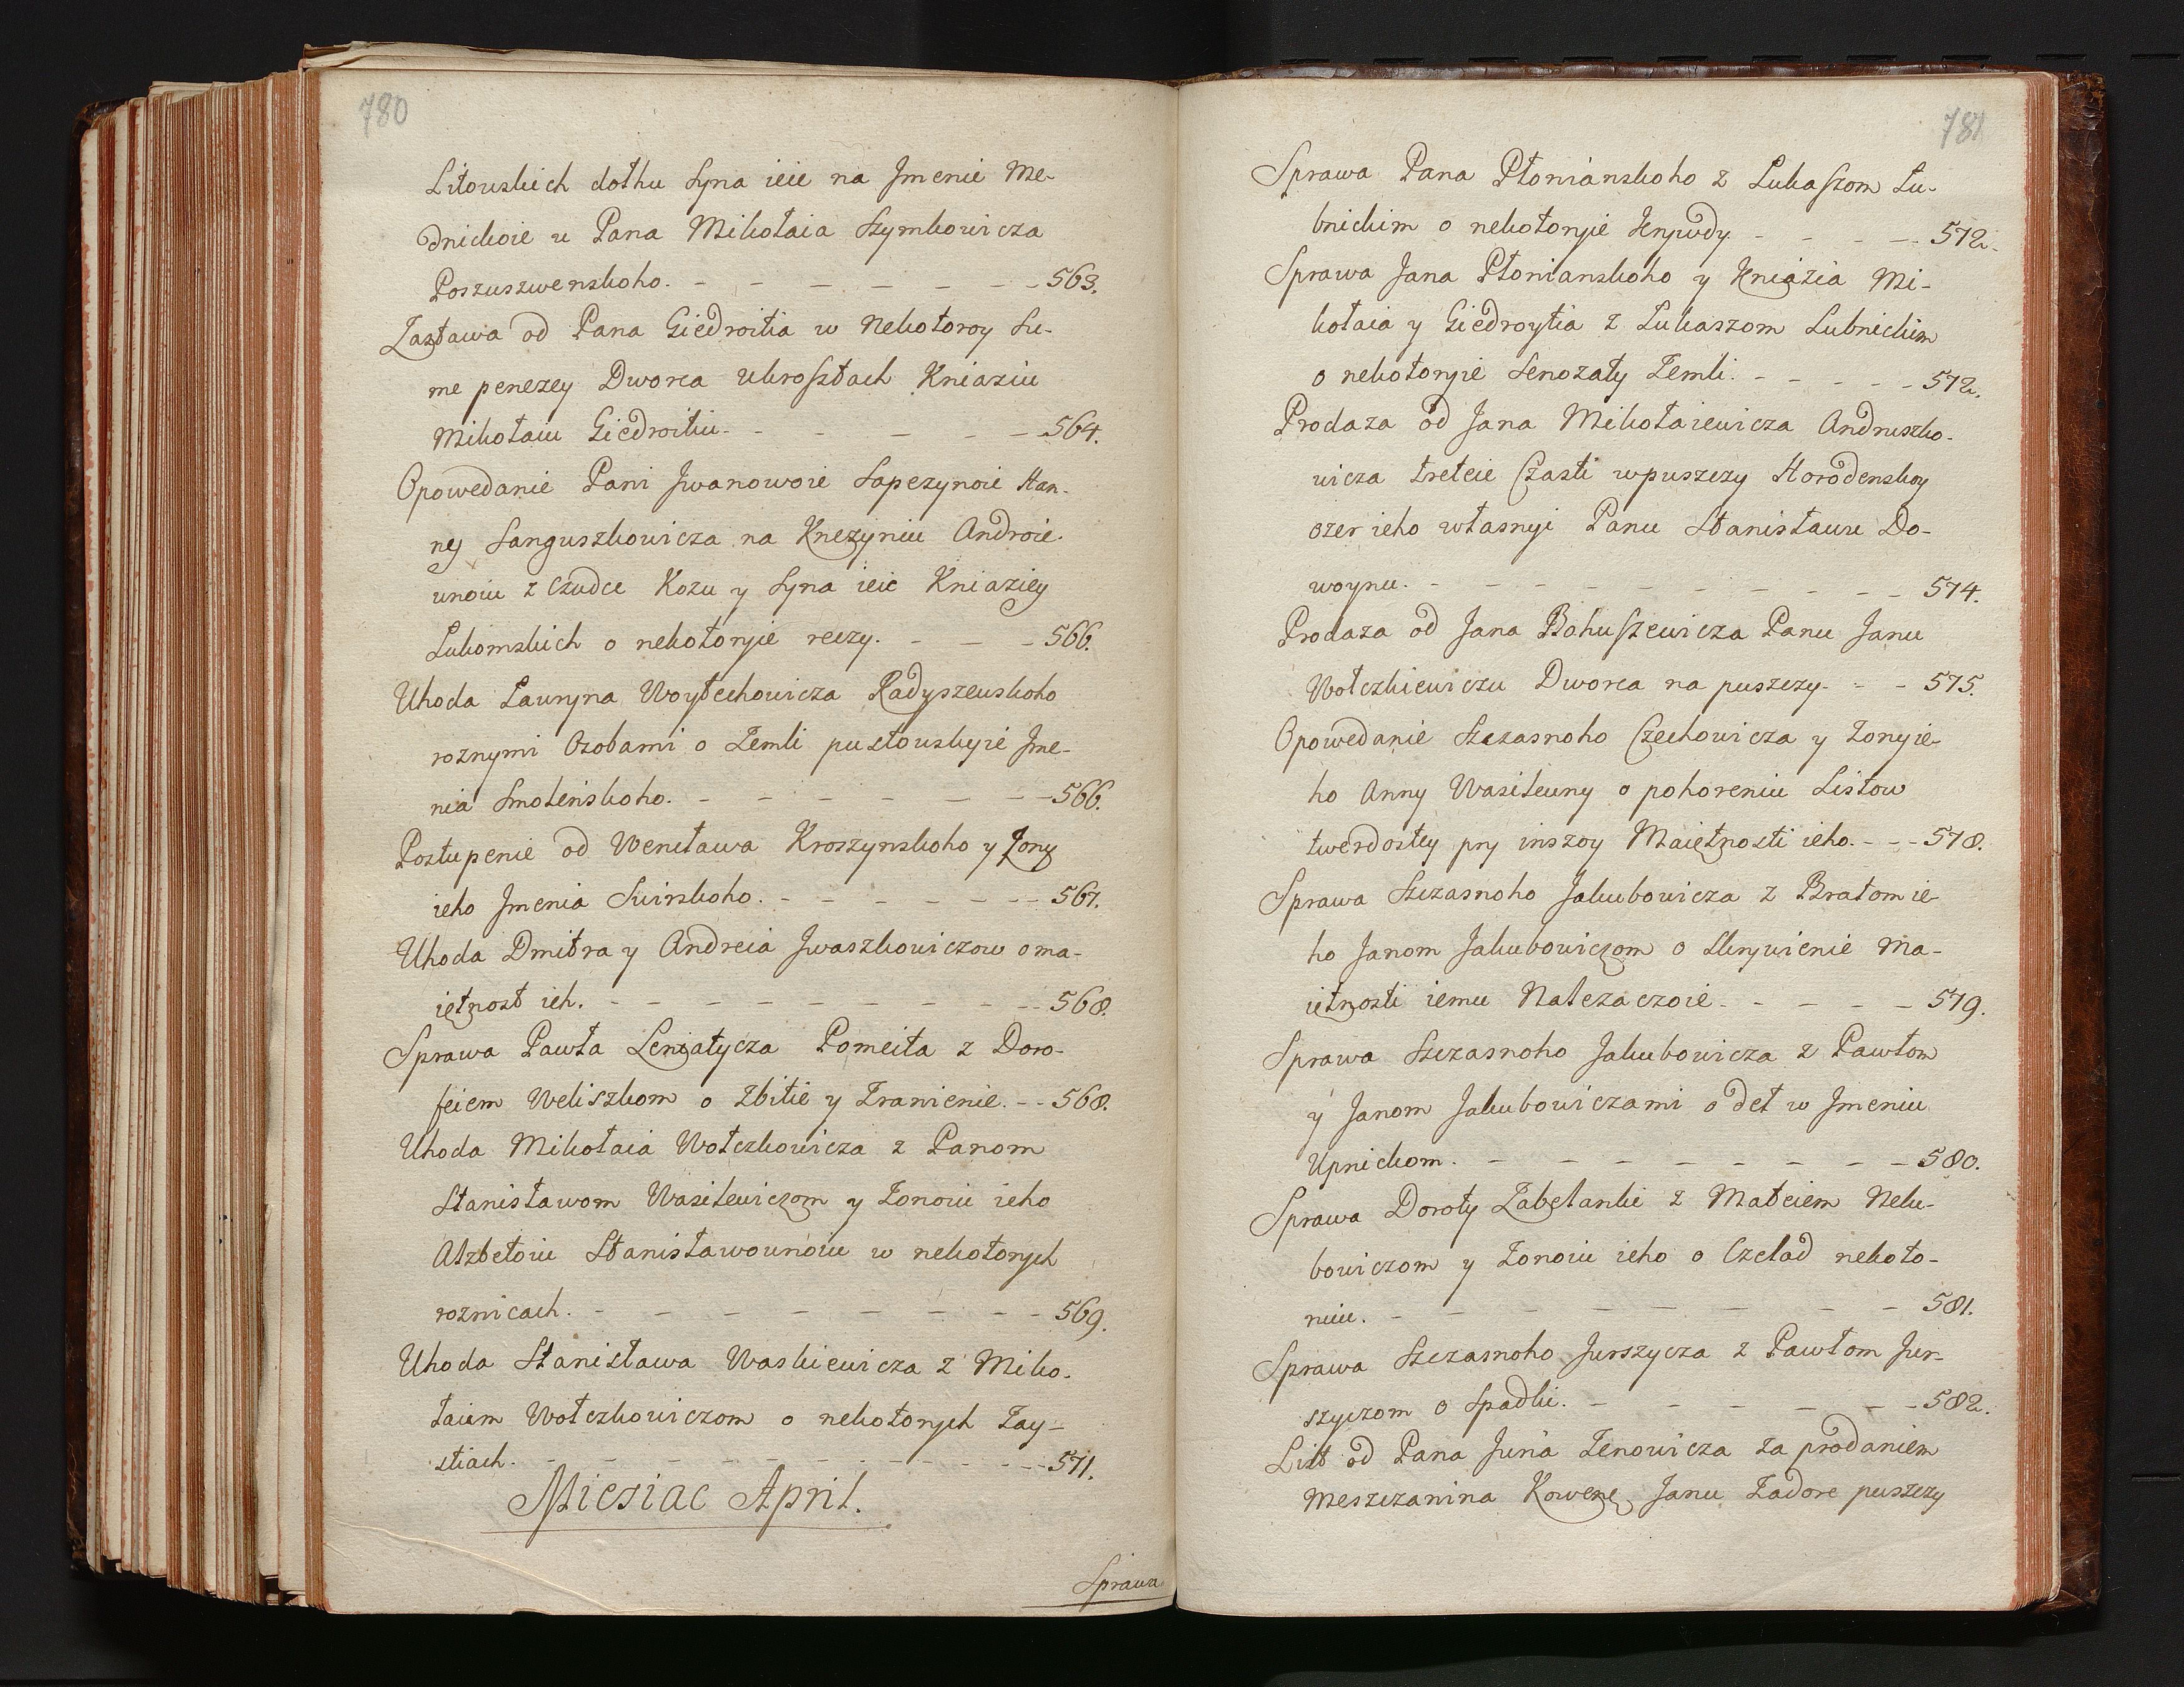 780
Litouskich dołhu Syna ieie na Jmenie Me-
dnickoie u Pana Mikołaia Szymkowicza
Poszuszwenskoho. - - - - - - - 563.
Zastawa od Pana Giedroitia w Nekotoroy Su-
me penezey Dworca Ukrosztach Kniaziu
Mikołaiu Giedroitiu. - - - - - 564.
Opowedanie Pani Jwanowoie Sapezynoie Han-
ny Sanguszkowicza na Knezyniu Androie-
unoiu z Czudce Kozu y Syna ieie Kniaziey
Lukomskich o nekotoryie reczy. - - - 566.
Uhoda Lawryna Woytechowicza Radyszeuskoho
roznymi Osobami o Zemli pustouskyie Jme-
nia Smolenskoho. - - - - - - - 566.
Postupenie od Wencława Kroszynskoho y Zony
ieho Jmenia Swirskoho. - - - - - - - 567.
Uhoda Dmitra y Andreia Jwaszkowiczow o ma-
iętnost ich. - - - - - - - - - - 568.
Sprawa Pawła Leniatycza Pomeita z Doro-
feiem Weliszkom o Zbitie y Zranienie. - - 568.
Uhoda Mikołaia Wołczkowicza z Panom
Stanisławom Wasilewiczom y Zonoiu ieho
Alzbetoiu Stanisławounoiu w nekotorych
roznicach. - - - - - - - - - 569.
Uhoda Stanisława Waskiewicza z Miko-
łaiem Wołczkowiczom o nekotorych Zay-
stiach. - - - - - - - - - - - 571.
Miesiac April.
Sprawa
781
Sprawa Pana Płonianskoho z Lukaszom Lu-
bnickim o nekotoryie Krywdy. - - - - - 572.
Sprawa Jana Płonianskoho y Kniazia Mi-
kołaia y Giedroytia z Lukaszom Lubnickim
o nekotoryie Senozaty Zemli. - - - - - 572.
Prodaza od Jana Mikołaiewicza Andruszko-
wicza treteie Czasti w puszczy Horodenskoy
ozer ieho własnyi Panu Stanisławu Do-
woynu. - - - - - - - - - - 574.
Prodaza od Jana Bohuszewicza Panu Janu
Wołczkiewiczu Dworca na puszczy. - - 575.
Opowedanie Szczasnoho Czechowicza y Zony ie-
ho Anny Wasilewny o pohoreniu Listow
twerdostey pry inszoy Maiętnosti ieho. - - - 578.
Sprawa Szczasnoho Jakubowicza z Bratom ie-
ho Janom Jakubowiczom o Skrywienie Ma-
iętnosti iemu Nalezaczoie. - - - - - 579.
Sprawa Szczasnoho Jakubowicza z Pawłom
y Janom Jakubowiczami o deł w Jmeniu
Upnickom. - - - - - - - - - 580.
Sprawa Doroty Zabełanki z Mateiem Neku-
bowiczom y Zonoiu ieho o Czelad nekoto-
ruiu. - - - - - - - - - 581.
Sprawa Szczasnoho Jurszycza z Pawłom Jur-
szyczom o Spadki. - - - - - - - 582.
List od Pana Juria Zenowicza za prodaniem
Meszczanina Kowene Janu Zadore puszczy